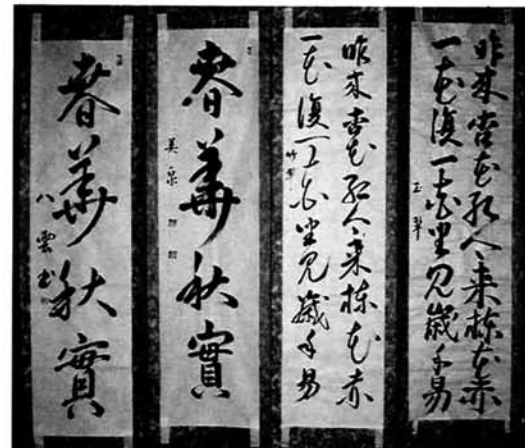 昨来杏花紅今来楝花赤
一花復一花坐見歳年易
玉翠
昨来杏花紅今来楝花赤
一花復一花坐見歳年易
春華秋實
美泉
春華秋實
八雲書